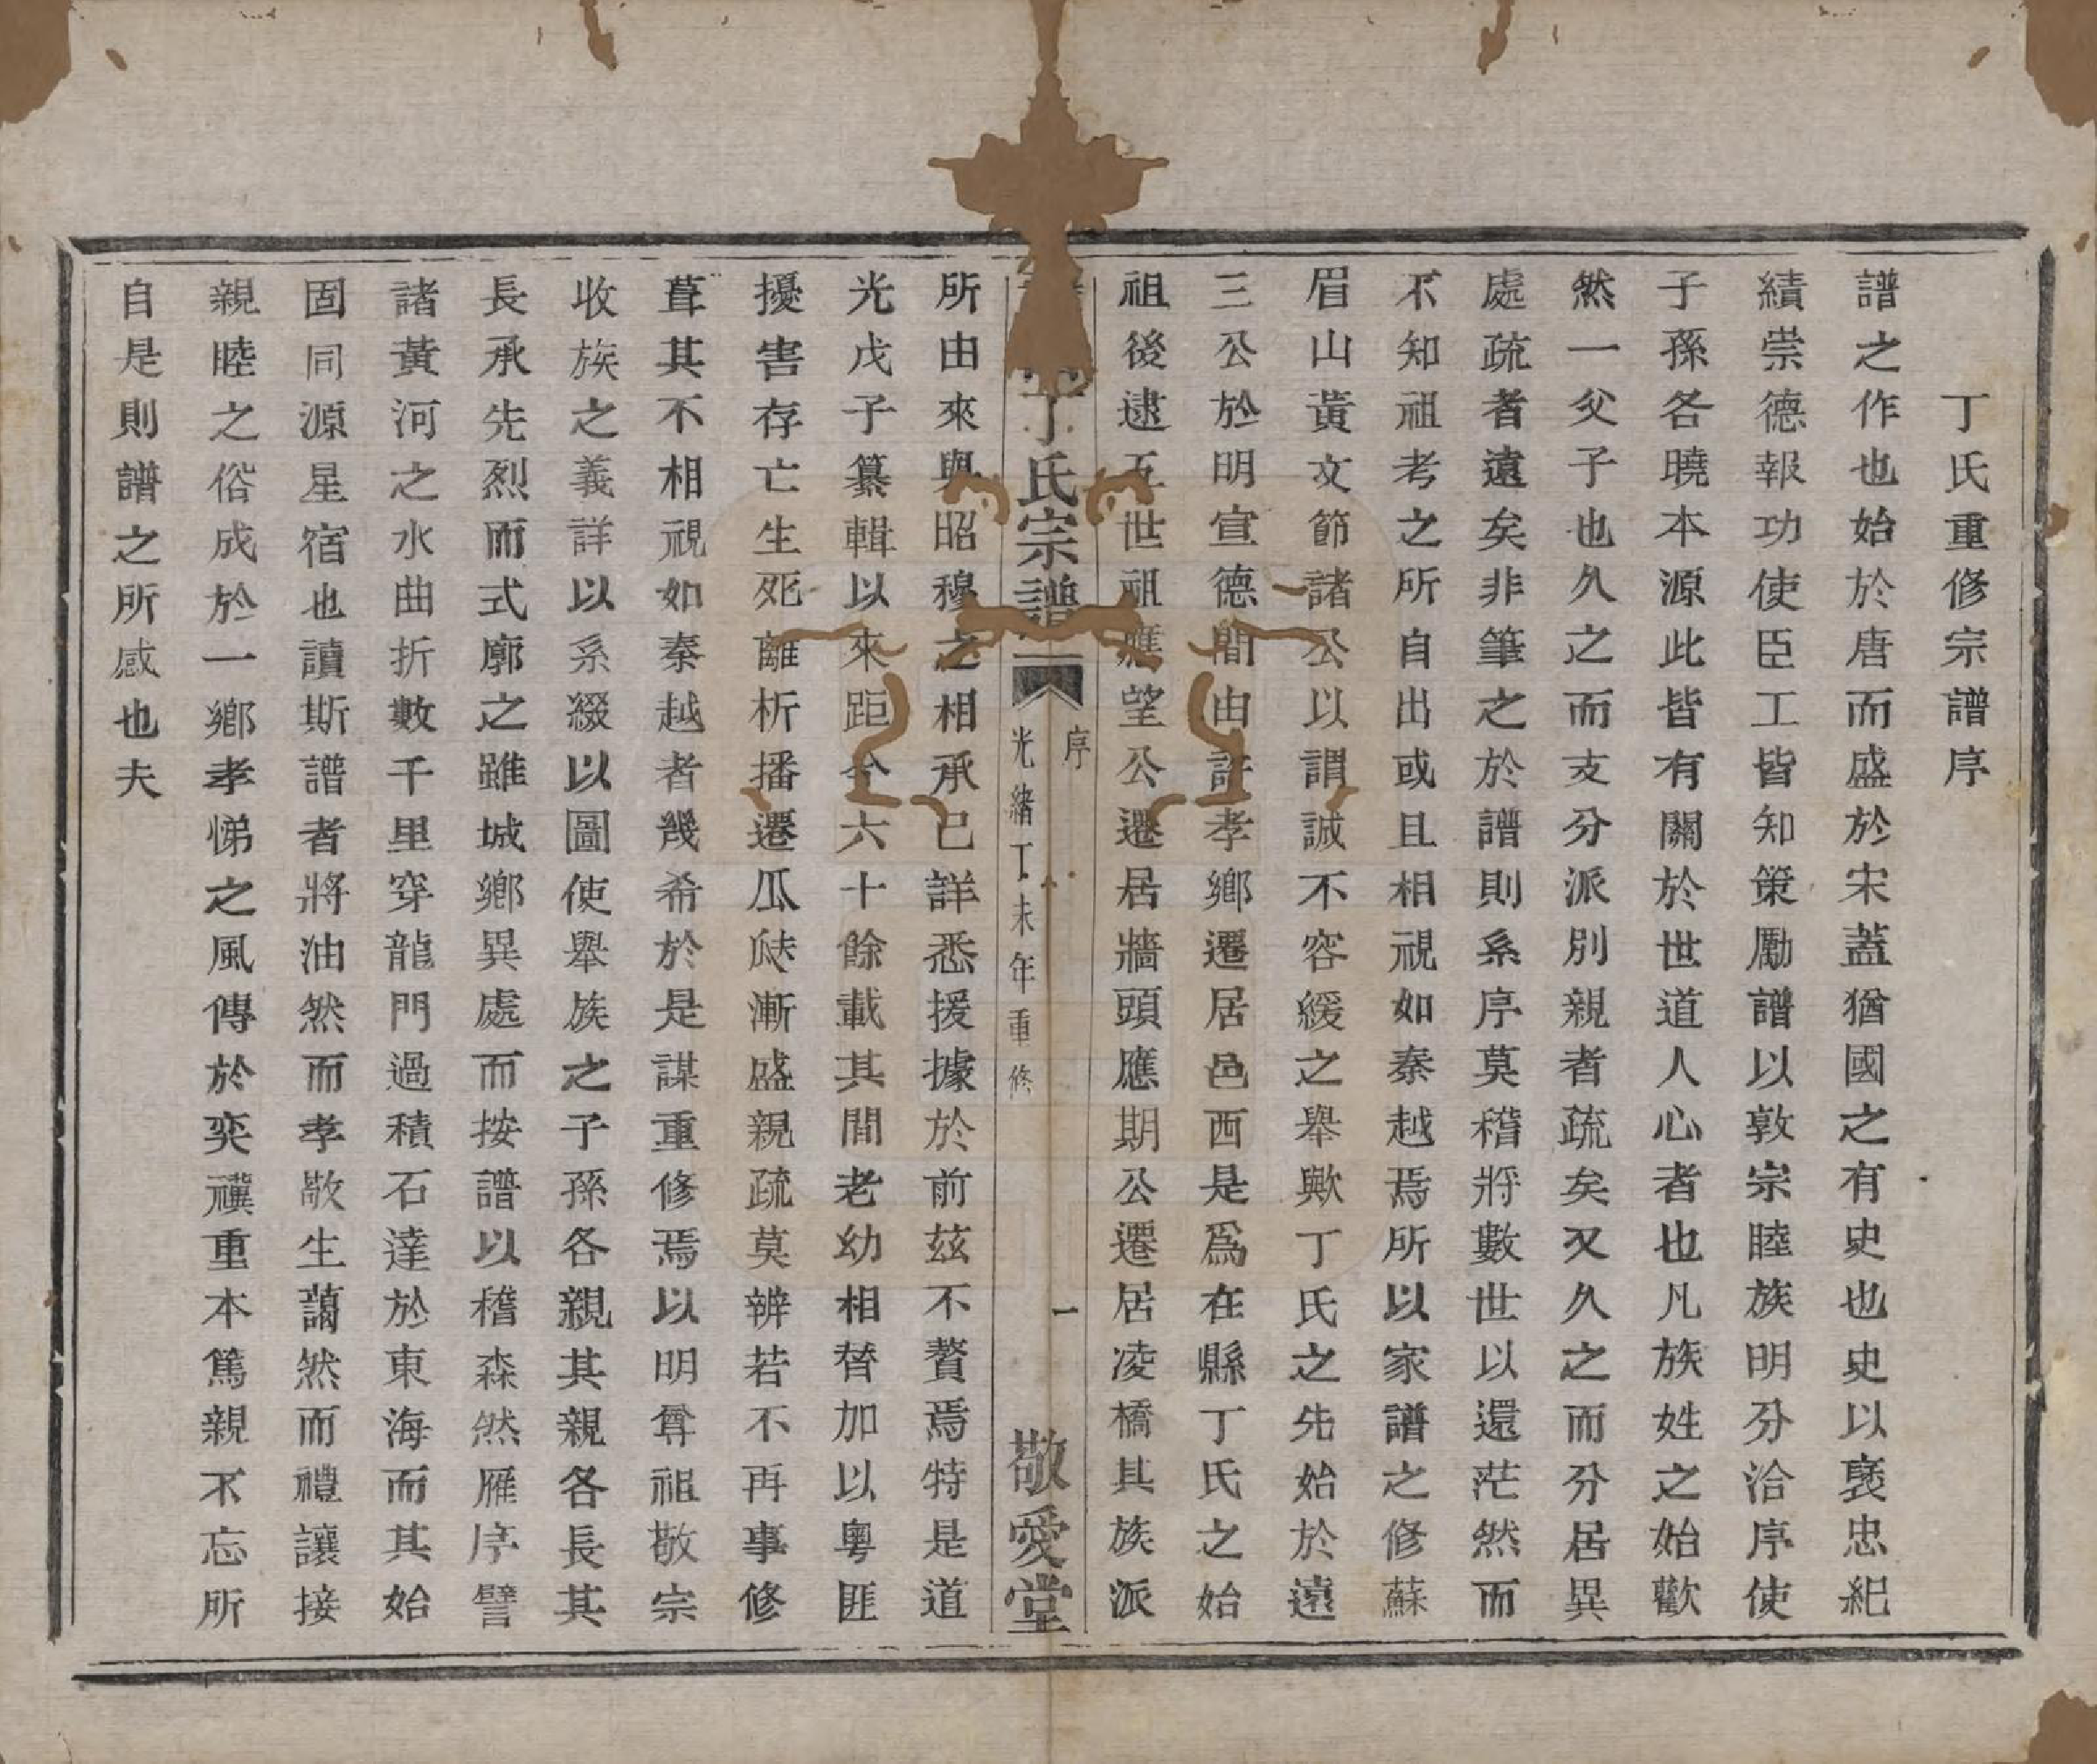 丁氏重修宗譜序
譜之作也始於唐而盛於宋蓋猶國之有史也史以褒忠紀
績崇德報功使臣工皆知策勵譜以敦宗睦族明分洽序使
子孫各曉本源此皆有關於世道人心者也凡族姓之始歡
然一父子也久之而支分派別親者疏矣又久之而分居異
處疏者遠矣非筆之於譜則系序莫稽將數世以還茫然而
不知祖考之所自出或且相視如秦越焉所以家譜之修蘇
眉山黃文節諸公以謂誠不容緩之舉歟丁氏之先始於遠
三公於明宣德間由許孝鄉遷居邑西是爲在縣丁氏之始
祖後逮五世祖應望公遷居牆頭應期公遷居凌橋其族派
丁氏宗譜
序
光緒丁未年重修
一
敬愛堂
所由來與昭穆之相承已詳悉援據於前茲不贅焉特是道
光戊子纂輯以來距今六十餘載其間老幼相替加以粵匪
擾害存亡生死離析播遷瓜瓞漸盛親疏莫辨若不再事修
葺其不相視如秦越者幾希於是謀重修焉以明尊祖敬宗
收族之義詳以系綴以圖使舉族之子孫各親其親各長其
長承先烈而式廓之雖城鄉異處而按譜以稽森然雁序譬
諸黃河之水曲折數千里穿龍門過積石達於東海而其始
固同源星宿也讀斯譜者將油然而孝敬生藹然而禮讓接
親睦之俗成於一鄉孝悌之風傳於奕禩重本篤親不忘所
自是則譜之所感也夫